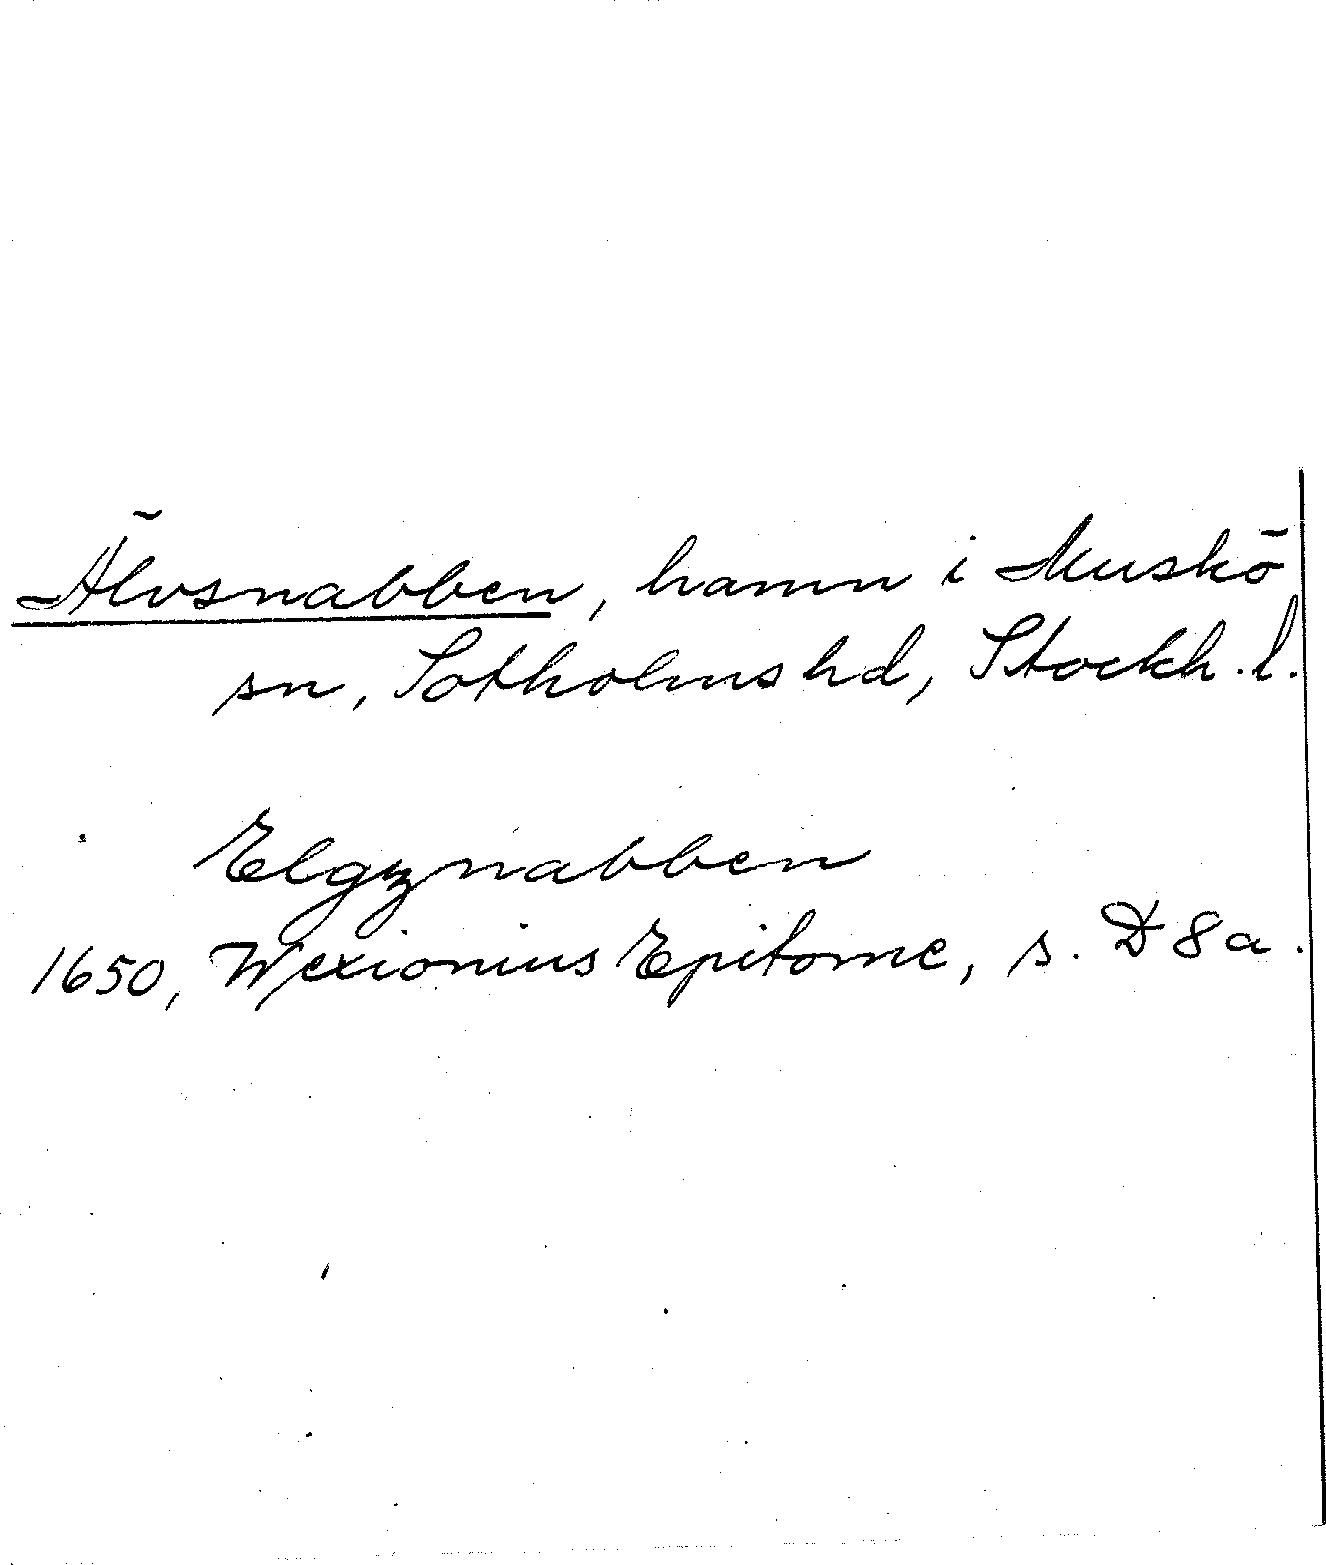 Älvsnabben, hamn i Muskö
sn, Sotholms hd, Stockh. l.
Elgznabben
1650, Wexionius Epitome, s. D 8 a.